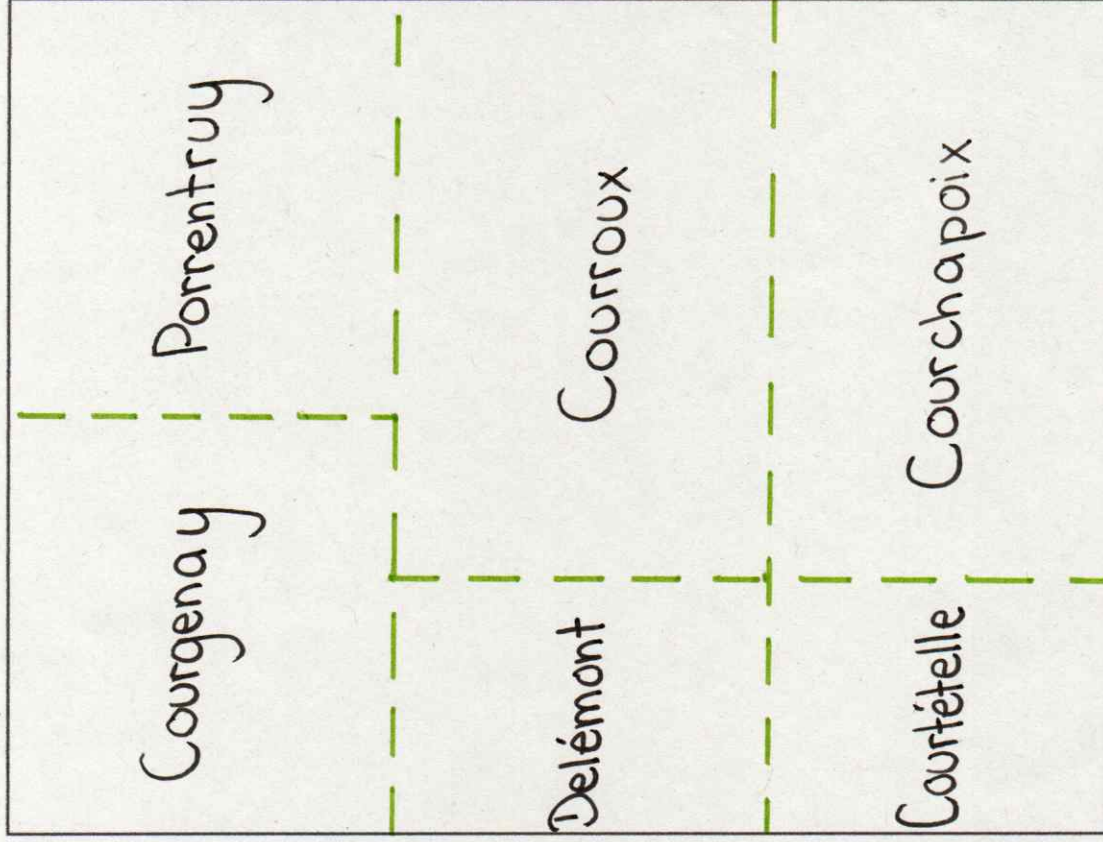 Courgenay Porrentruy
Delémont Courroux
Courtételle Courchapoix